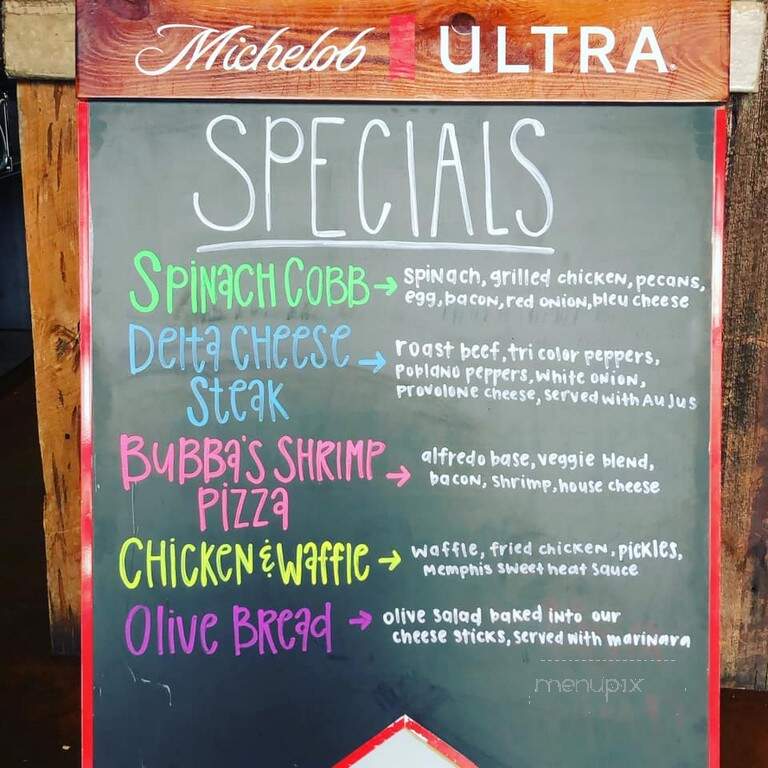 Michelob ULTRA
SPECIALS
SPINACH COBB → spinach, grilled chicken, pecans,
egg, bacon, red onion, bleu cheese
Delta CHEESE
Steak → roast beef, tri color peppers,
Poblano peppers, white onion,
provolone cheese, served with Au Jus
BUBBA'S SHRIMP
Pizza → alfredo base, veggie blend,
bacon, shrimp, house cheese
CHICKEN & Waffle → waffle, fried chicken, pickles,
Memphis sweet heat sauce
Olive Bread → olive salad baked into our
cheese sticks, served with marinara
menupix